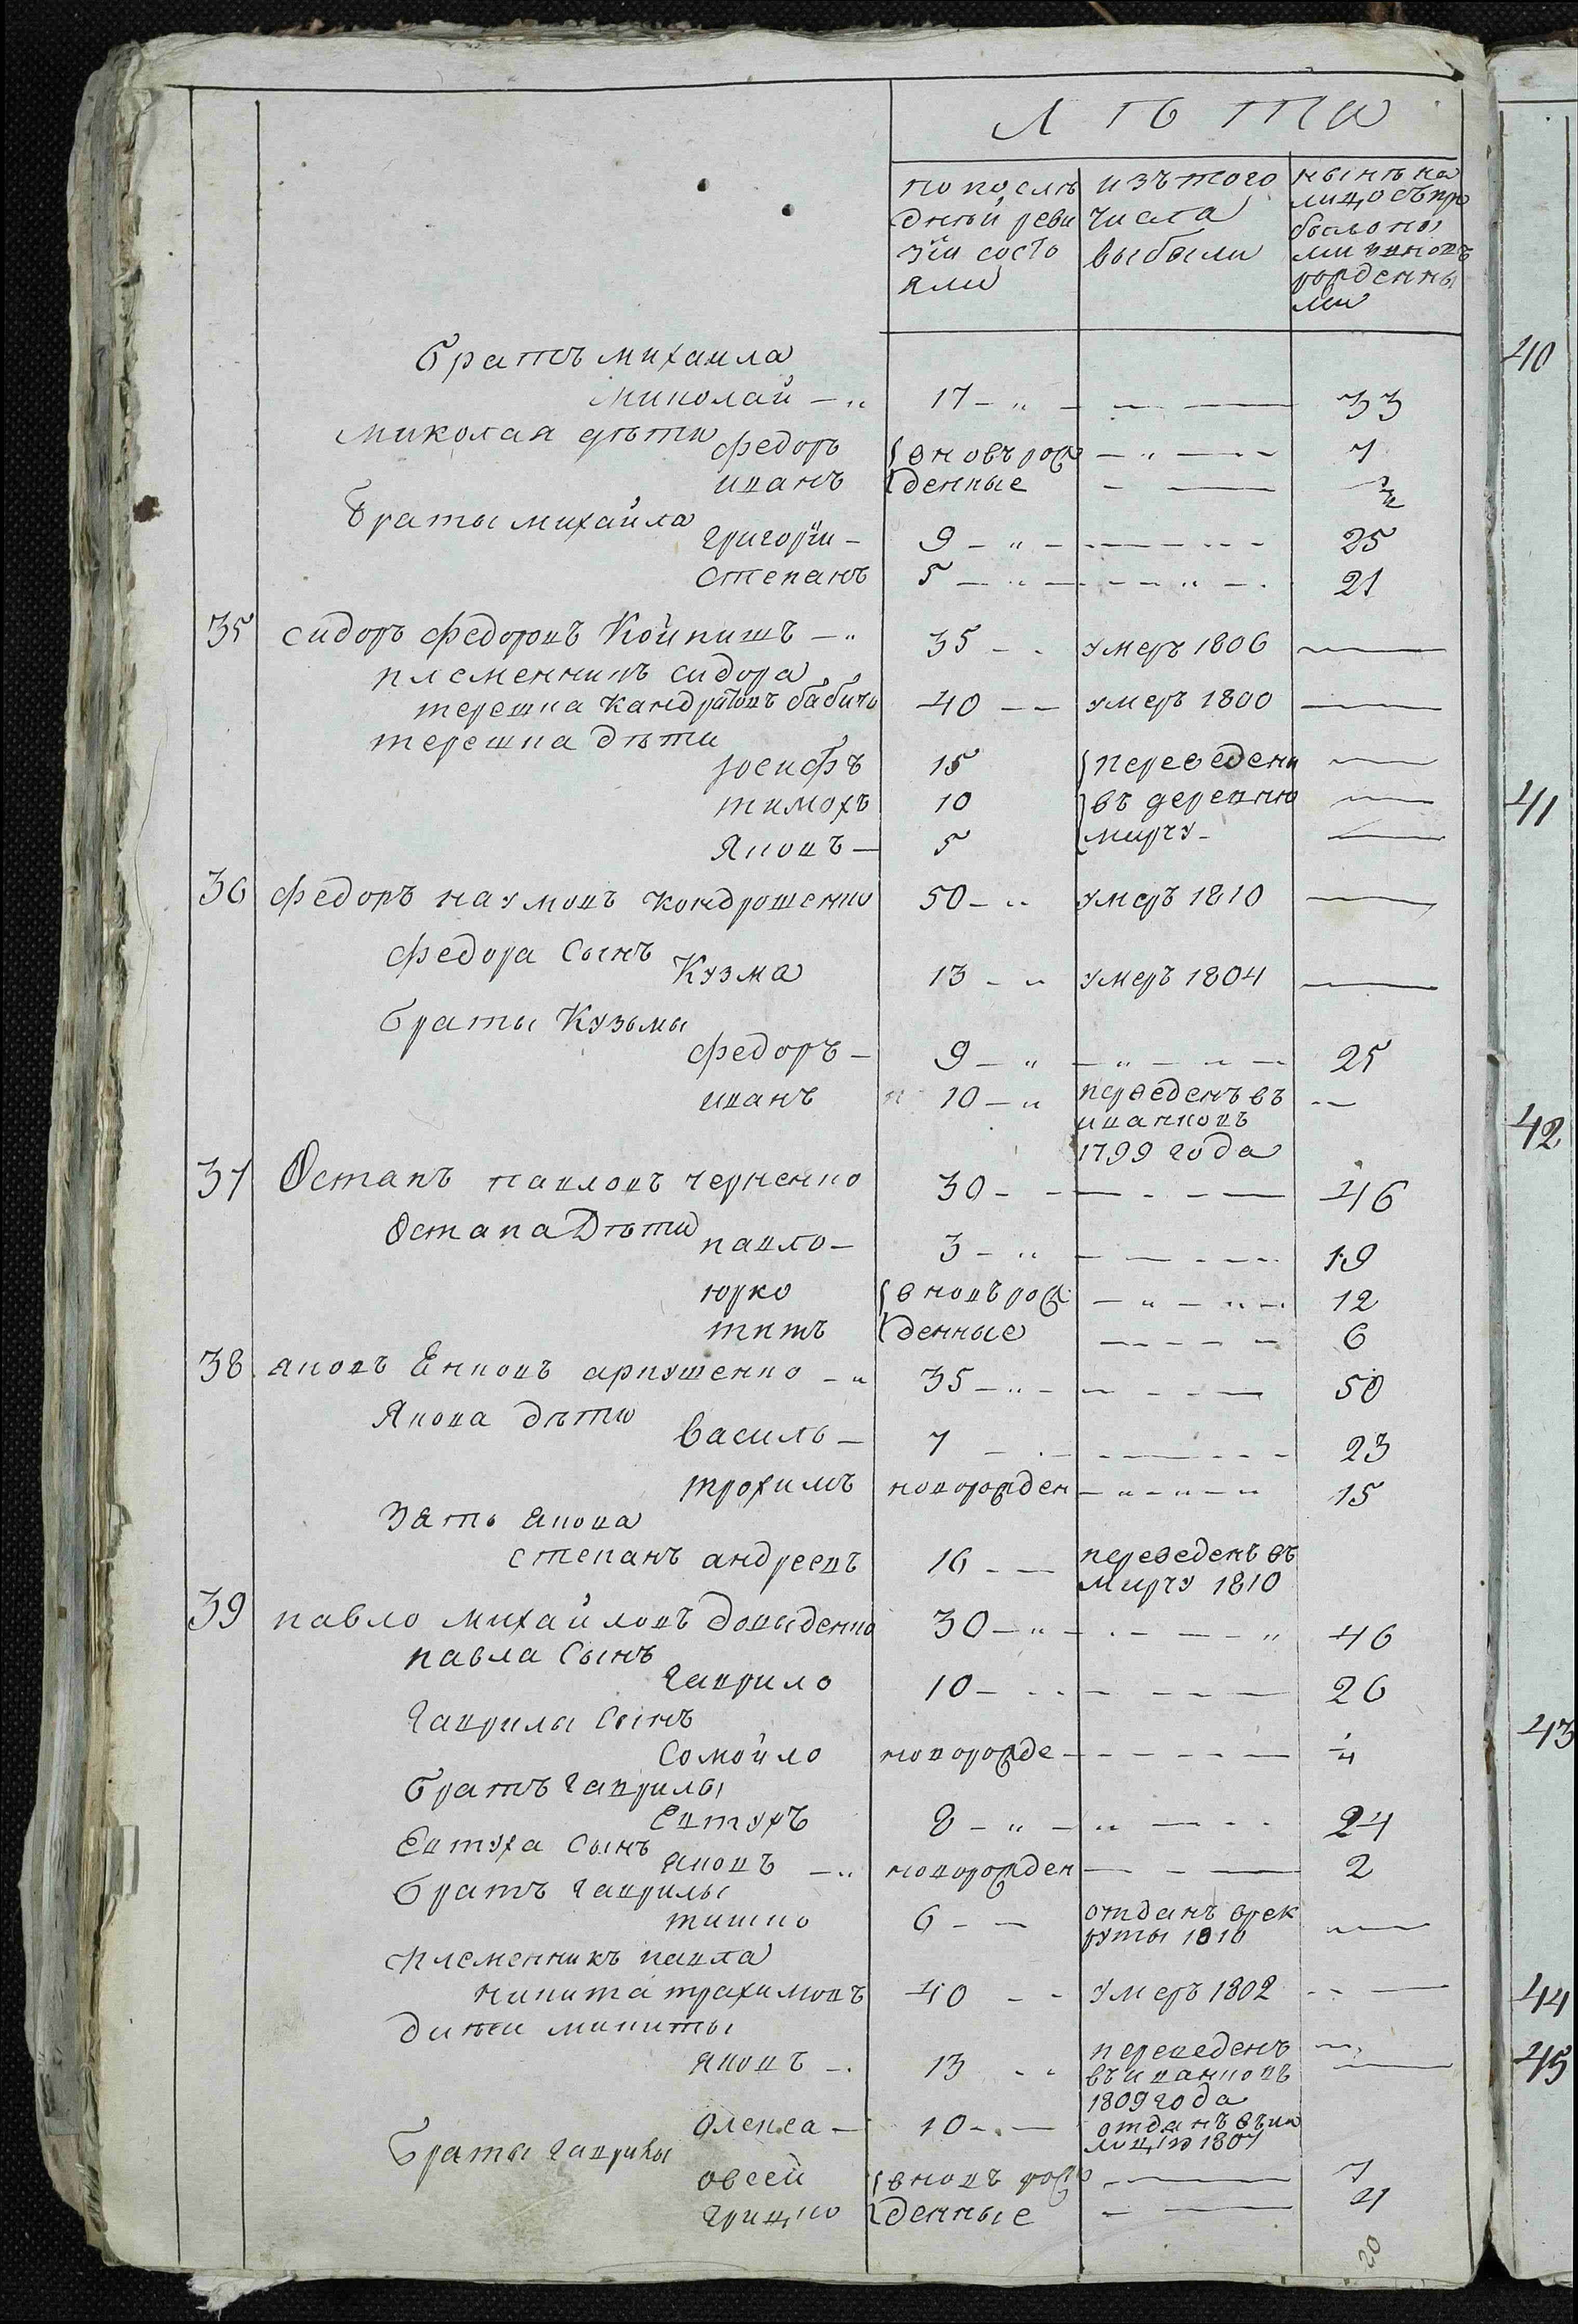 Лѣта
по послѣ
дней реви
зіи состо
яли
изъ того
числа
выбыли
нынѣ на
лицо съ при
былоно
ми вновь
рожденны
ми
братъ михаила
миколай 17 33
миколая дѣти
федоръ вновъ рож 7
иванъ денные
браты михайла
григорій 9 25
степанъ 5 21
35 сидоръ федоровъ Койпишъ 35 умеръ 1806
племенникъ сидора
терешка кандратовъ бабичъ 40 умеръ 1800
терешка дѣти
юсифъ 15 переведени
тимохъ 10 въ деревню
Яковъ 5 мирчу
36 федоръ наумовъ кондрошенко 50 умеръ 1810
федора сынъ
Кузма 13 умеръ 1804
браты Кузьмы
федоръ 9 25
иванъ 10 переведенъ въ
иванковъ
1799 года
37 Остапъ павловъ черненко 30 46
Остапа Дѣти
павло 3 19
юрко вновъ рож 12
титъ денные 6
38 яковъ Енковъ арпушенко 35 50
Якова дѣти
василь 7 23
трохимъ новорожден 15
Зять якова
степанъ андреевъ 16 переведенъ въ
мирчу 1810
39 павло михайловъ довыденко 30 46
павла сынъ
гаврило 10 26
гаврилы сынъ
сомойло новорожде
братъ гаврилы
Евтухъ 8 24
Евтуха сынъ
яковъ новорожден 2
братъ гаврилы
тишко 6 отданъ врек
руты 1810
племенникъ павла
никита трахимовъ 40 умеръ 1802
дитеи микиты
яковъ 13 переведенъ
въ иванковъ
1809 года
олекса 10 отданъ въ ми
лицію 1807
браты гаврилы
овсей вновъ рож 7
грицко денные 4
20
40
41
42
43
44
45